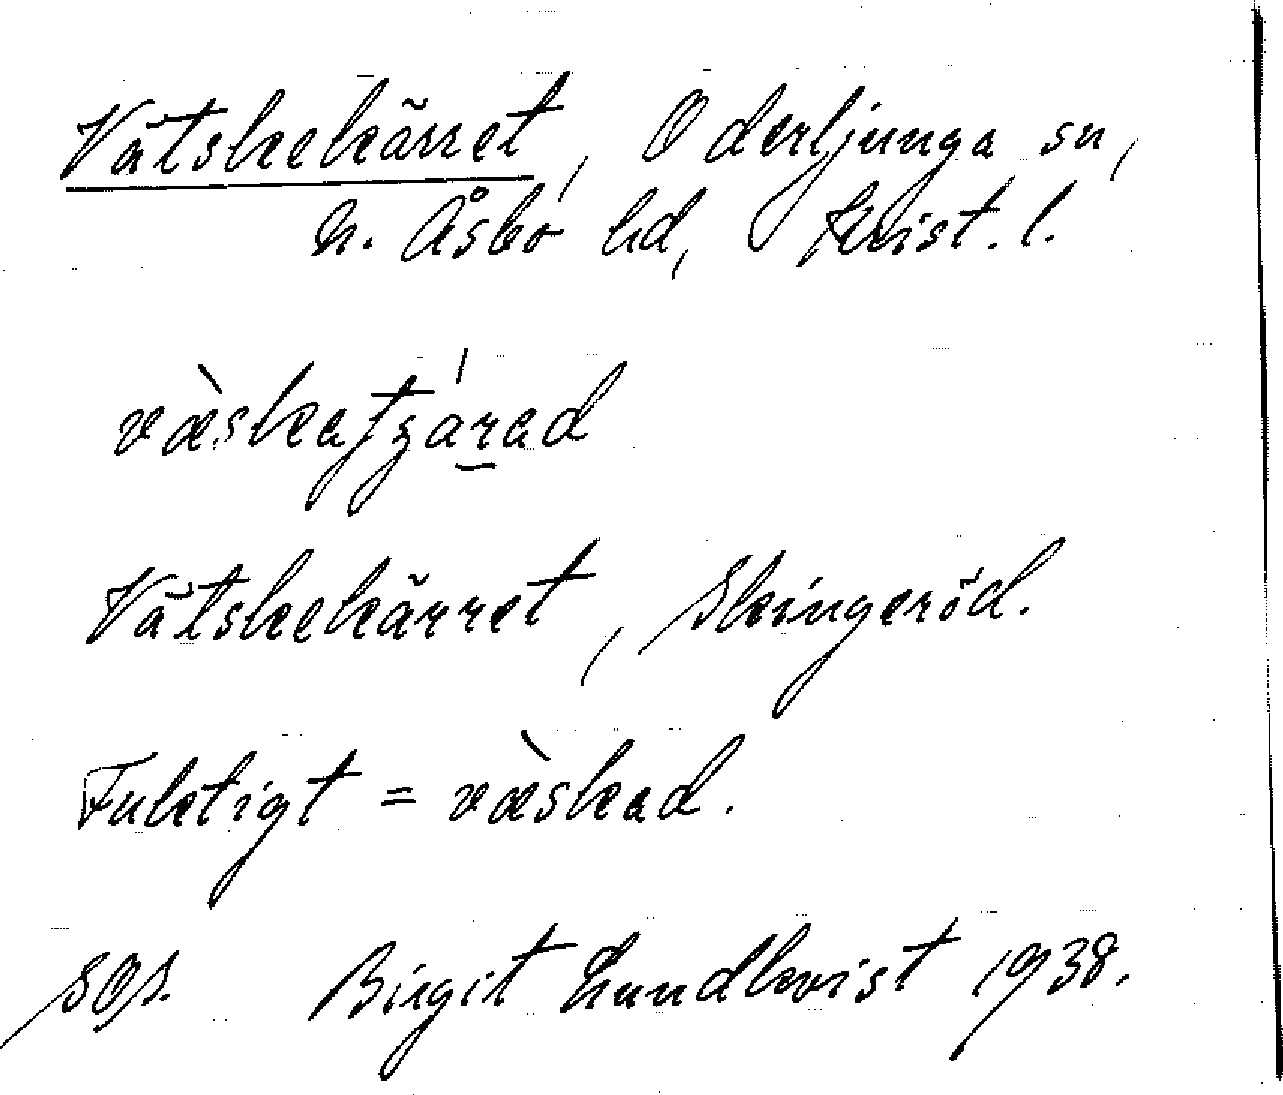 Vätskekärret, Oderljunga sn,
N. Åsbo hd, Krist. l.
Vätskekärret, Skingeröd.
Fuktigt = vӕ̀skad.
SOA. Birgit Lundkvist 1938.